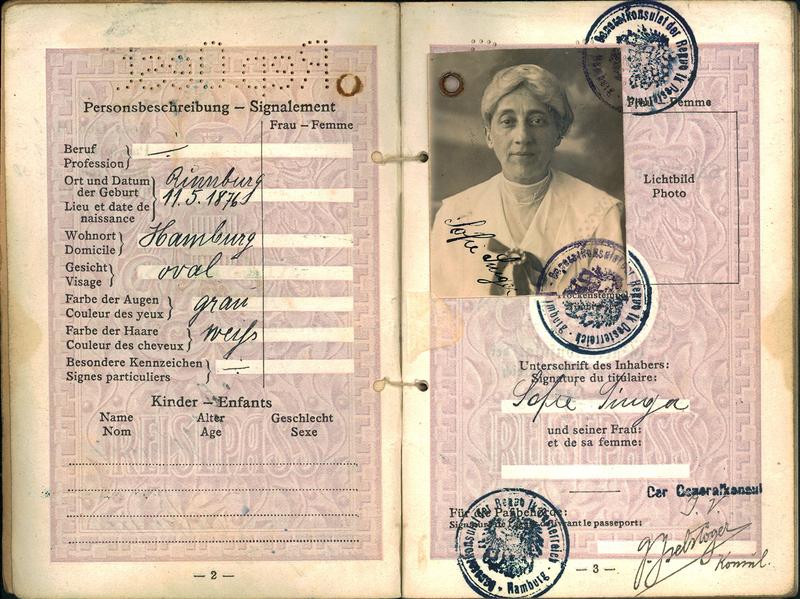 Personsbeschreibung — Signalement
Frau — Femme
Beruf
Profession
—
Ort und Datum
der Geburt
Lieu et date de
naissance
Rinnburg
11.5.1876
Wohnort
Domicile
Hamburg
Gesicht
Visage
oval
Farbe der Augen
Couleur des yeux
grau
Farbe der Haare
Couleur des cheveux
weiß
Besondere Kennzeichen
Signes particuliers
—
Kinder — Enfants
Name Alter Geschlecht
Nom Age Sexe
REISEPASS
— 2 —
Generalkonsulat der Repub‘lik Oesterreich
Hamburg
Frau — Femme
Lichtbild
Photo
Sofie
Generalkonsulat der Republik Oesterreich - Hamburg
Trockenstempel
Unterschrift des Inhabers:
Signature du titulaire:
Sofie
und seiner Frau:
et de sa femme:
Der Generalkonsul
I. V.
Für die Paßbehörde:
délivrant le passeport:
Generalkonsulat der Republik Oesterreich - Hamburg
Konsul.
— 3 —